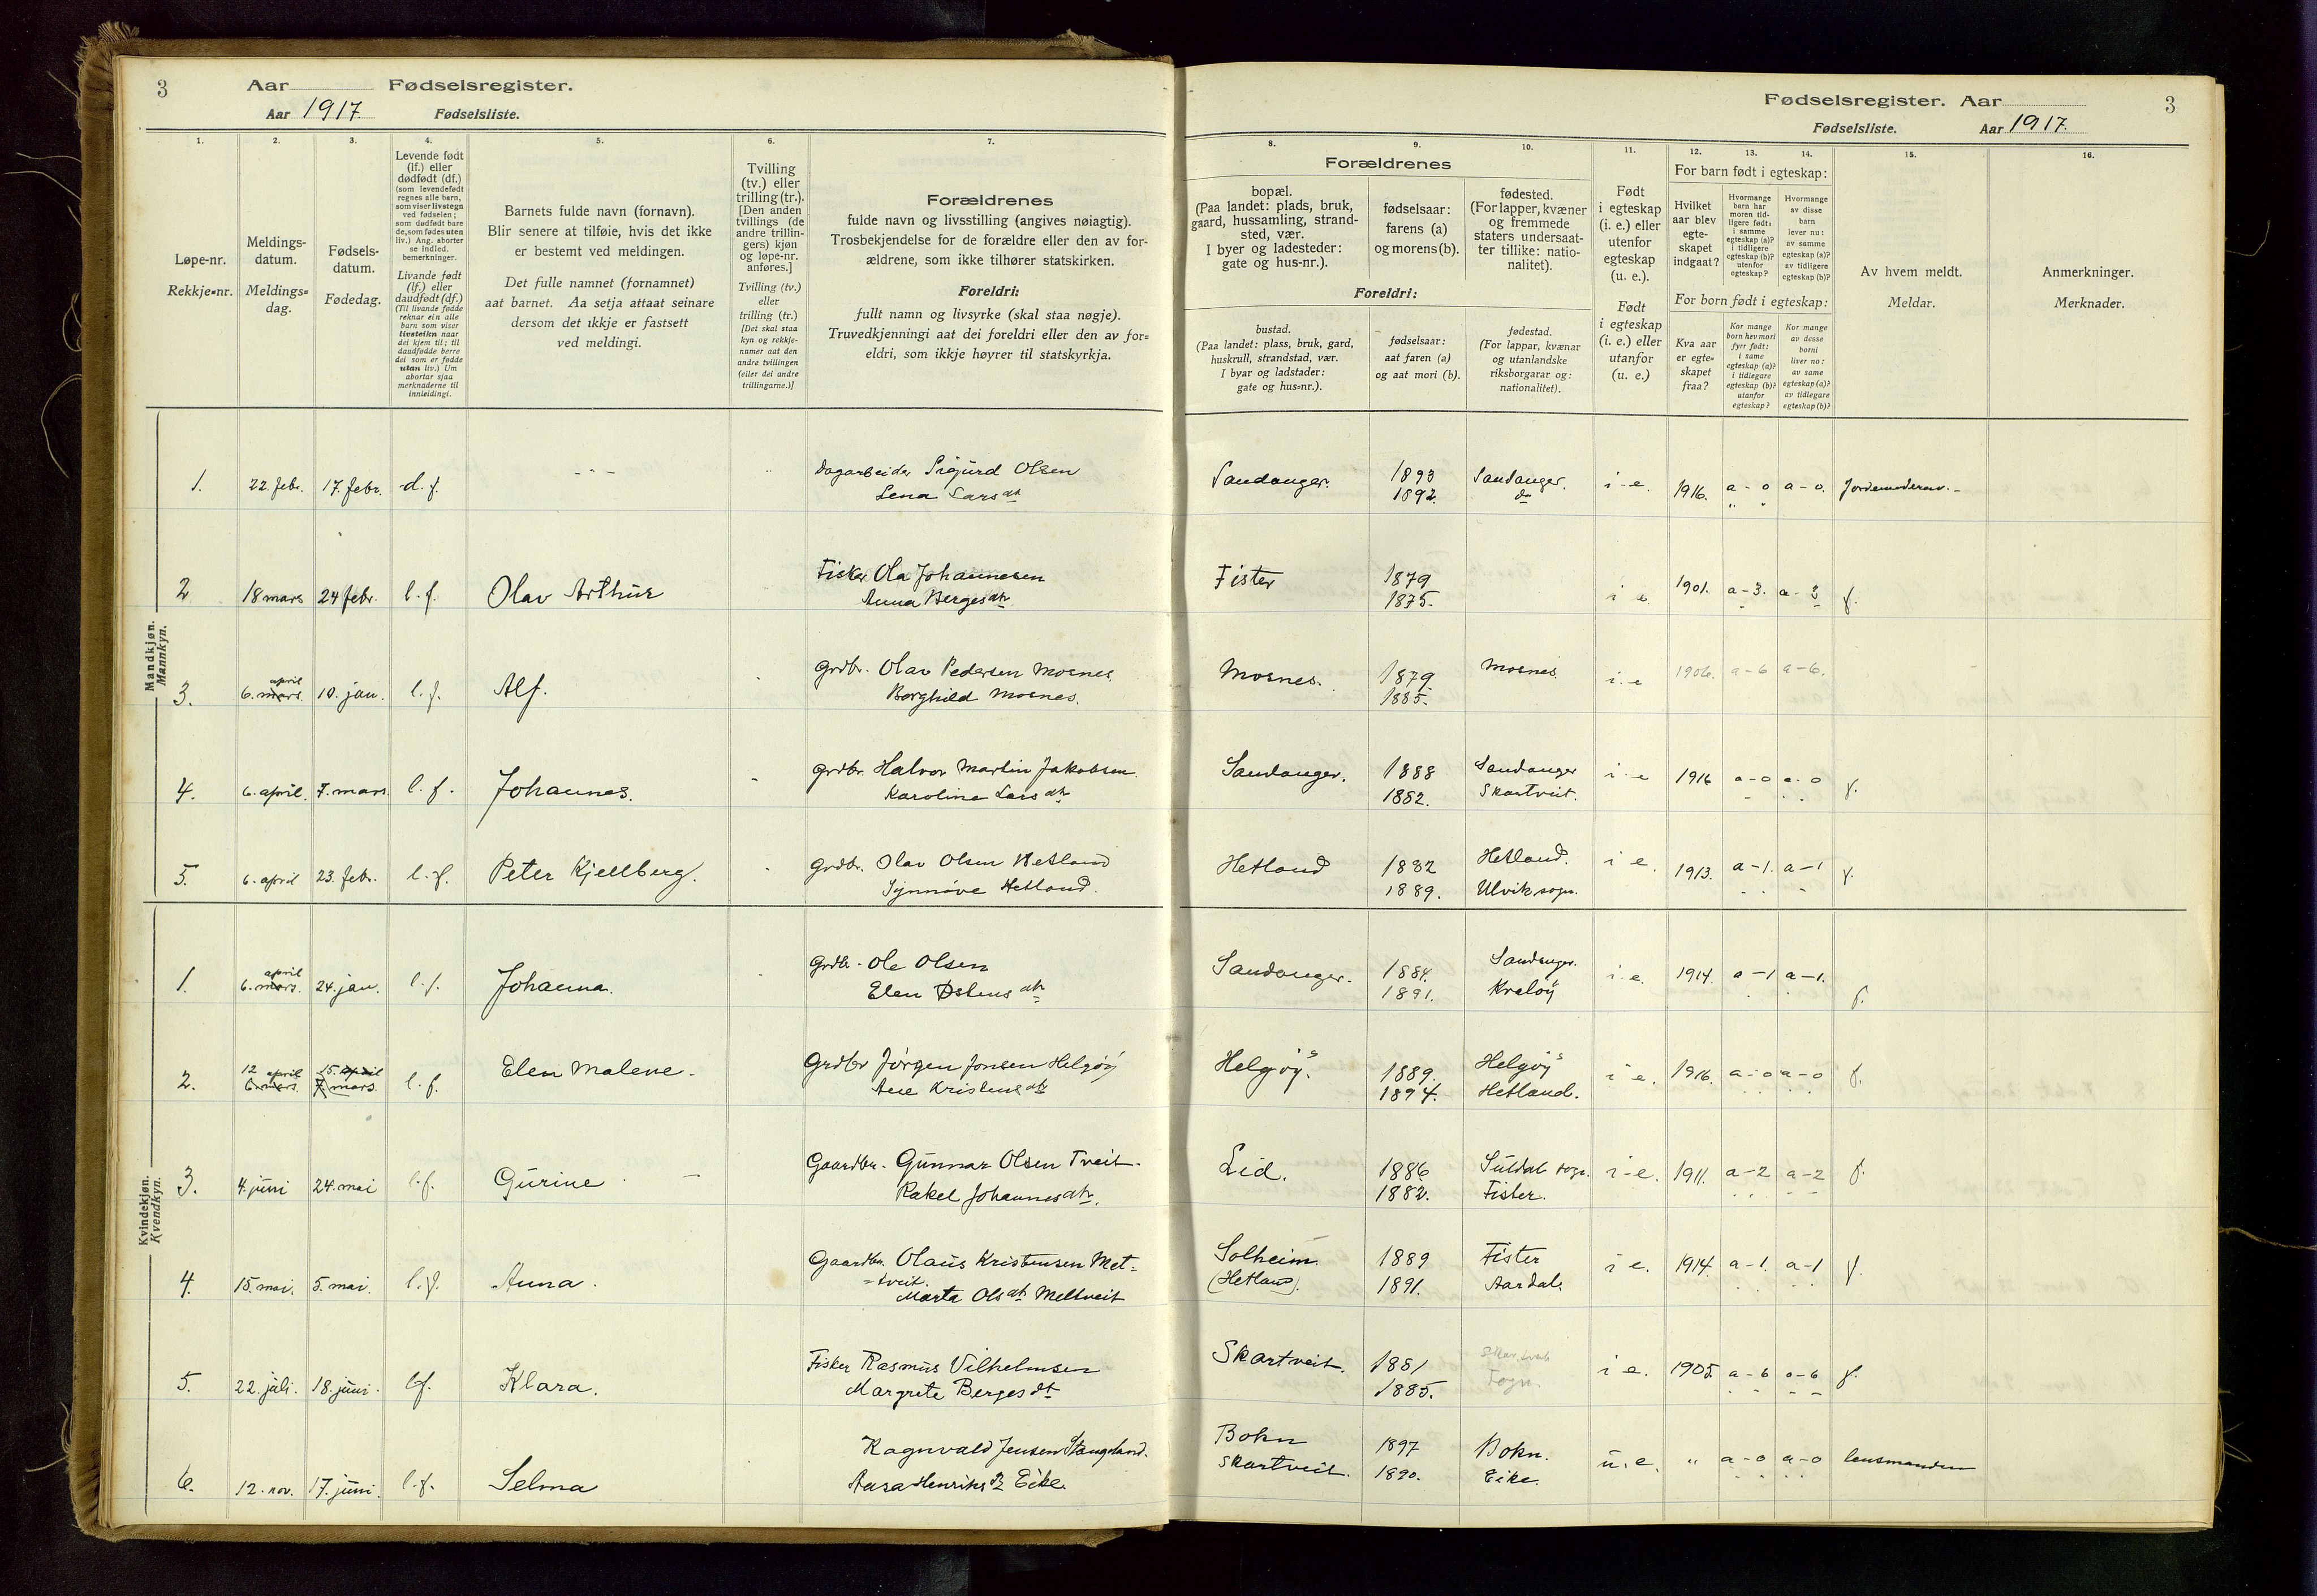 3 Aar Fødselsregister.
Aar 1917 Fødselsliste.
Fødselsregister. Aar 3
Fødselsliste. Aar 1917.
1. 2. 3. 4. 5. 6. 7.
8. 9. 10. 11. 12. 13. 14. 15. 16.
Løpe-nr.
Rekkje-nr.
Meldings-
datum.
Meldings-
dag.
Fødsels-
datum.
Fødedag.
Levende født
(lf.) eller
dødfødt (df.)
(som levendefødt
regnes alle barn,
som viser livstegn
ved fødselen;
som dødfødt bare
de, som fødes uten
liv.) Ang. aborter
se indled.
bemerkninger.
Livande født
(lf.) eller
daudfødt (df.)
(Til livande fødde
reknar ein alle
barn som viser
livsteikn naar
dei kjem til; til
daudfødde berre
dei som er fødde
utan liv.) Um
abortar sjaa
merknaderne til
innleidingi.
Barnets fulde navn (fornavn).
Blir senere at tilføie, hvis det ikke
er bestemt ved meldingen.
Det fulle namnet (fornamnet)
aat barnet. Aa setja attaat seinare
dersom det ikkje er fastsett
ved meldingi.
Tvilling
(tv.) eller
trilling (tr.).
[Den anden
tvillings (de
andre trillin-
gers) kjøn
og løpe-nr.
anføres.]
Tvilling (tv.)
eller
trilling (tr.)
[Det skal staa
kyn og rekkje-
numer aat den
andre tvillingen
(eller dei andre
trillingarne.)]
Forældrenes
fulde navn og livsstilling (angives nøiagtig).
Trosbekjendelse for de forældre eller den av for-
ældrene, som ikke tilhører statskirken.
Foreldri:
fullt namn og livsyrke (skal staa nøgje).
Truvedkjenningi aat dei foreldri eller den av for-
eldri, som ikkje høyrer til statskyrkja.
Forældrenes
bopæl.
(Paa landet: plads, bruk,
gaard, hussamling, strand-
sted, vær.
I byer og ladesteder:
gate og hus-nr.).
fødselsaar:
farens (a)
og morens (b).
fødested.
(For lapper, kvæner
og fremmede
staters undersaat-
ter tillike: natio-
nalitet).
Foreldri:
bustad.
(Paa landet: plass, bruk, gard,
huskrull, strandstad, vær.
I byar og ladstader:
gate og hus-nr.).
fødselsaar:
aat faren (a)
og aat mori (b).
fødestad.
(For lappar, kvænar
og utanlandske
riksborgarar og:
nationalitet).
Født
i egteskap
(i. e.) eller
utenfor
egteskap
(u. e.).
Født
i egteskap
(i. e.) eller
utanfor
(u. e.)
For barn født i egteskap:
Hvilket
aar blev
egte-
skapet
indgaat?
Hvormange
barn har
moren tid-
ligere født:
i samme
egteskap (a)?
i tidligere
egteskap (b)?
utenfor
egteskap?
Hvormange
av disse
barn
lever nu:
av samme
egteskap (a)?
av tidligere
egteskap (b)?
For born født i egteskap:
Kva aar
er egte-
skapet
fraa?
Kor mange
born hev mori
fyrr født:
i same
egteskap (a)?
i tidlegare
egteskap (b)?
utanfor
egteskap?
Kor mange
av desse
borni
liver no:
av same
egteskap (a)?
av tidlegare
egteskap (b)?
Av hvem meldt.
Meldar.
Anmerkninger.
Merknader.
Mandkjøn.
Mannkyn.
1. 22. febr. 17. febr. d. f. - - - Dagarbeider Sigurd Olsen Sandanger. 1893 Sandanger. i - e. 1916. a - 0 a - 0. Jordemoderen.
Lena Larsdt 1892. do
2 18 mars 24 febr. l. f. Olav Arthur Fisker Ola Johannesen Fister 1879 i e. 1901. a - 3. a - 3 f.
Anna Bergesdtr 1875.
3. 6. april mars. 10. jan. l. f. Alf. Grdbr. Olav Pedersen Mosnes. Mosnes. 1879. Mosnes. i. e 1906. a - 6 a - 6.
Borghild Mosnes. 1885.
4. 6. april. 7. mars. l. f. Johannes. Grdbr. Halvor Martin Jakobsen. Sandanger. 1888 Sandanger i - e 1916 a - 0 a - 0 f.
Karoline Larsdtr 1882. Skartveit.
5. 6. april 23. febr. l. f. Peter Kjellberg. Grdbr. Olav Olsen Hetland Hetland 1882 Hetland. i e. 1913. a - 1. a - 1 f.
Synnöve Hetland. 1889. Ulvik sogn.
Kvindekjøn.
Kvendkyn.
1. 6. april mars. 24. jan. l. f. Johanna. Grdbr. Ole Olsen Sandanger. 1884. Sandanger. i - e. 1914. a - 1 a - 1. f.
Elen Østensdtr 1891. Kveløy
2. 12 april 6. mars. 15. april 7 mars. l. f. Elen Malene. Grdbr Jörgen Jonsen Helgöy Helgöy. 1889. Helgöy i e. 1916. a - 0 a - 0 f.
Ane Kristensdtr 1894. Hetland.
3. 4. juni 24. mai l. f. Gurine Gaardbr. Gunnar Olsen Tveit. Lid. 1886 Suldal sogn. i - e. 1911. a - 2 a - 2 f.
Rakel Johannesdtr. 1882. Fister.
4. 15. mai. 5. mai. l. f. Anna. Gaardbr. Olaus Kristensen Met- Solheim. 1889 Fister i e. 1914. a - 1. a - 1 f.
tveit. (Hetland).
Marta Olsdt Meltveit 1891. Aardal.
5. 22. juli. 18. juni. l. f. Klara. Fisker Rasmus Vilhelmsen Skartveit. 1881 i e. 1905. a - 6 a - 6 f.
Margrete Bergesdt 1885. Sogn.
6. 12. nov. 17. juni. l. f. Selma Ragnvald Jensen Stangeland. Bokn 1897 Bokn. u. e. " a - 0 a - 0 lensmanden
Aasa Henriksd Eike. Skartveit. 1890. Eike.